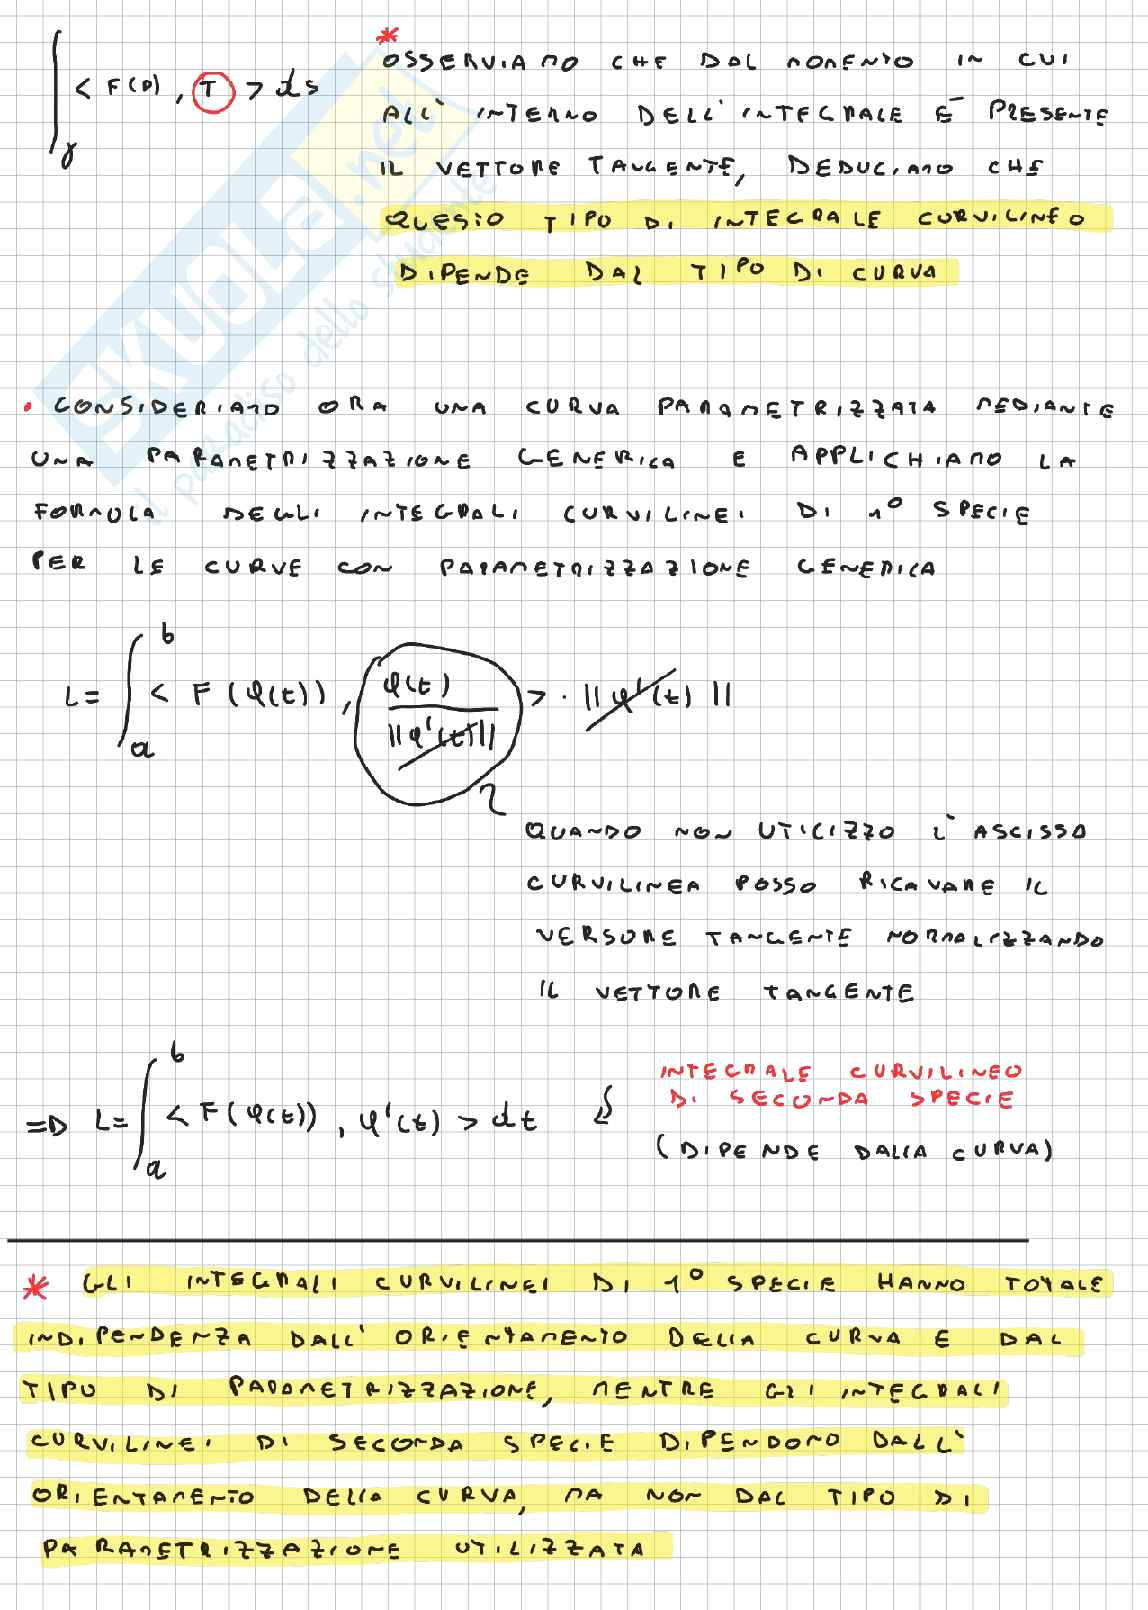 ∫γ < F(P), T > ds
*
OSSERVIAMO CHE DAL MOMENTO IN CUI
ALL' INTERNO DELL'INTEGRALE E' PRESENTE
IL VETTORE TANGENTE, DEDUCIAMO CHE
QUESTO TIPO DI INTEGRALE CURVILINEO
DIPENDE DAL TIPO DI CURVA
SKUOLA.net
il paradiso dello studente
• CONSIDERIAMO ORA UNA CURVA PARAMETRIZZATA MEDIANTE
UNA PARAMETRIZZAZIONE GENERICA E APPLICHIAMO LA
FORMULA DEGLI INTEGRALI CURVILINEI DI 1° SPECIE
PER LE CURVE CON PARAMETRIZZAZIONE GENERICA
L = ∫_a^b < F(φ(t)), φ(t) / ||φ'(t)|| > · ||φ'(t)||
QUANDO NON UTILIZZO L' ASCISSA
CURVILINEA POSSO RICAVARE IL
VERSORE TANGENTE NORMALIZZANDO
IL VETTORE TANGENTE
=D L = ∫_a^b < F(φ(t)), φ'(t) > dt
INTEGRALE CURVILINEO
DI SECONDA SPECIE
(DIPENDE DALLA CURVA)
* GLI INTEGRALI CURVILINEI DI 1° SPECIE HANNO TOTALE
INDIPENDENZA DALL' ORIENTAMENTO DELLA CURVA E DAL
TIPO DI PARAMETRIZZAZIONE, MENTRE GLI INTEGRALI
CURVILINEI DI SECONDA SPECIE DIPENDONO DALL'
ORIENTAMENTO DELLA CURVA, MA NON DAL TIPO DI
PARAMETRIZZAZIONE UTILIZZATA